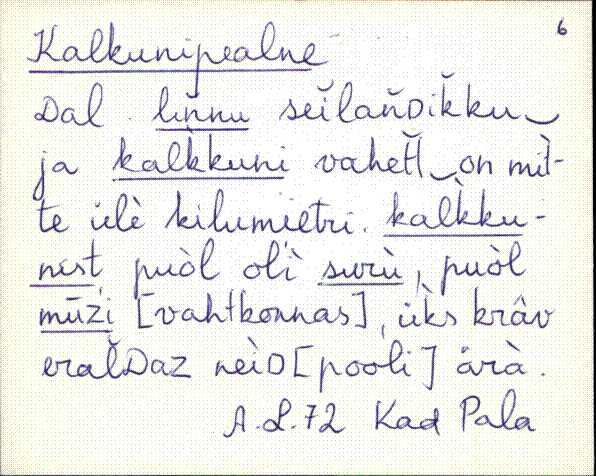 6
Kalkunipealne
Dal. lιňnu seĭlaňDiǩku‿
ja kalk̀kuni vaheťl‿on mit̀-
te ülè kilumietri. kalk̀ku-
nist, puòl oĺì surù, puòl
mūźi [vahtkonnas], üks krâv
eralDaz neìD [pooli] ärà.
A.L.72 Kad Pala